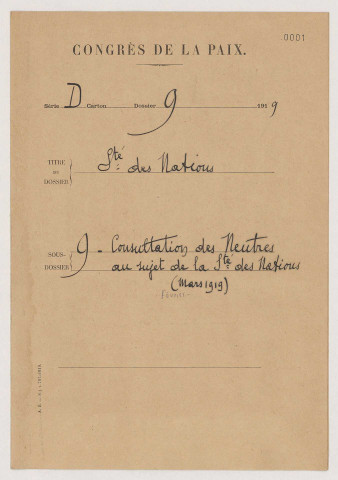 0001
CONGRÈS DE LA PAIX.
Série D Carton Dossier 9 1919
TITRE
DU
DOSSIER
Sté des Nations
SOUS-
DOSSIER
9 - Consultation des Neutres
au sujet de la Sté des Nations
(Mars 1919)